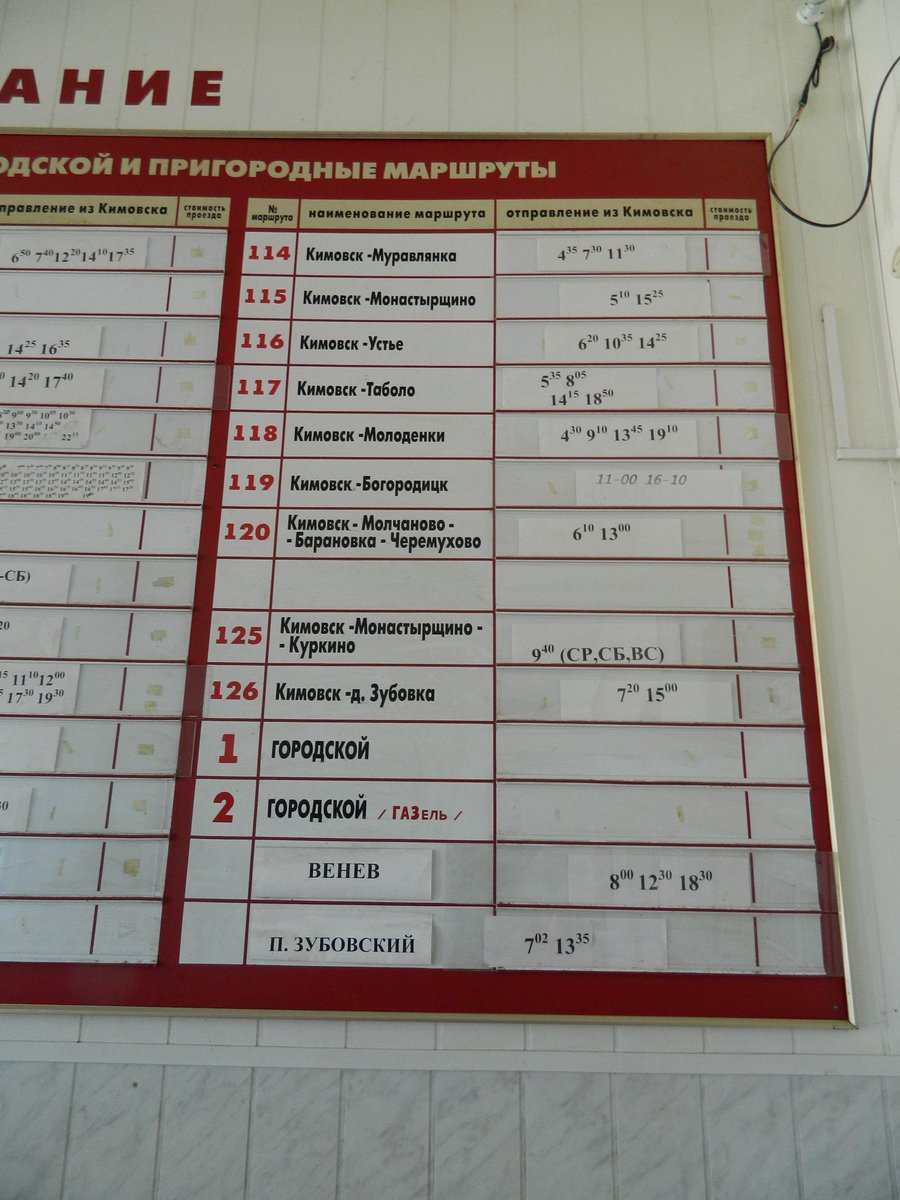 АНИЕ
ОДСКОЙ И ПРИГОРОДНЫЕ МАРШРУТЫ
правление из Кимовска стоимость проезда
6⁵⁰ 7⁴⁰ 12²⁰ 14¹⁰ 17³⁵
14²⁵ 16³⁵
14²⁰ 17⁴⁰
9⁰⁰ 9³⁰ 10⁰⁵ 10³⁰
13³⁰ 14¹⁰ 14⁵⁰
19⁰⁰ 20⁰⁰ 22¹⁵
-СБ)
11¹⁰ 12⁰⁰
17³⁰ 19³⁰
№ маршрута наименование маршрута отправление из Кимовска стоимость проезда
114 Кимовск -Муравлянка 4³⁵ 7³⁰ 11³⁰
115 Кимовск -Монастырщино 5¹⁰ 15²⁵
116 Кимовск -Устье 6²⁰ 10³⁵ 14²⁵
117 Кимовск -Таболо 5³⁵ 8⁰⁵
14¹⁵ 18⁵⁰
118 Кимовск -Молоденки 4³⁰ 9¹⁰ 13⁴⁵ 19¹⁰
119 Кимовск -Богородицк 11-00 16-10
120 Кимовск - Молчаново -
- Барановка - Черемухово 6¹⁰ 13⁰⁰
125 Кимовск -Монастырщино -
- Куркино 9⁴⁰ (СР,СБ,ВС)
126 Кимовск -д. Зубовка 7²⁰ 15⁰⁰
1 ГОРОДСКОЙ
2 ГОРОДСКОЙ / ГАЗЕЛЬ /
ВЕНЕВ 8⁰⁰ 12³⁰ 18³⁰
П. ЗУБОВСКИЙ 7⁰² 13³⁵